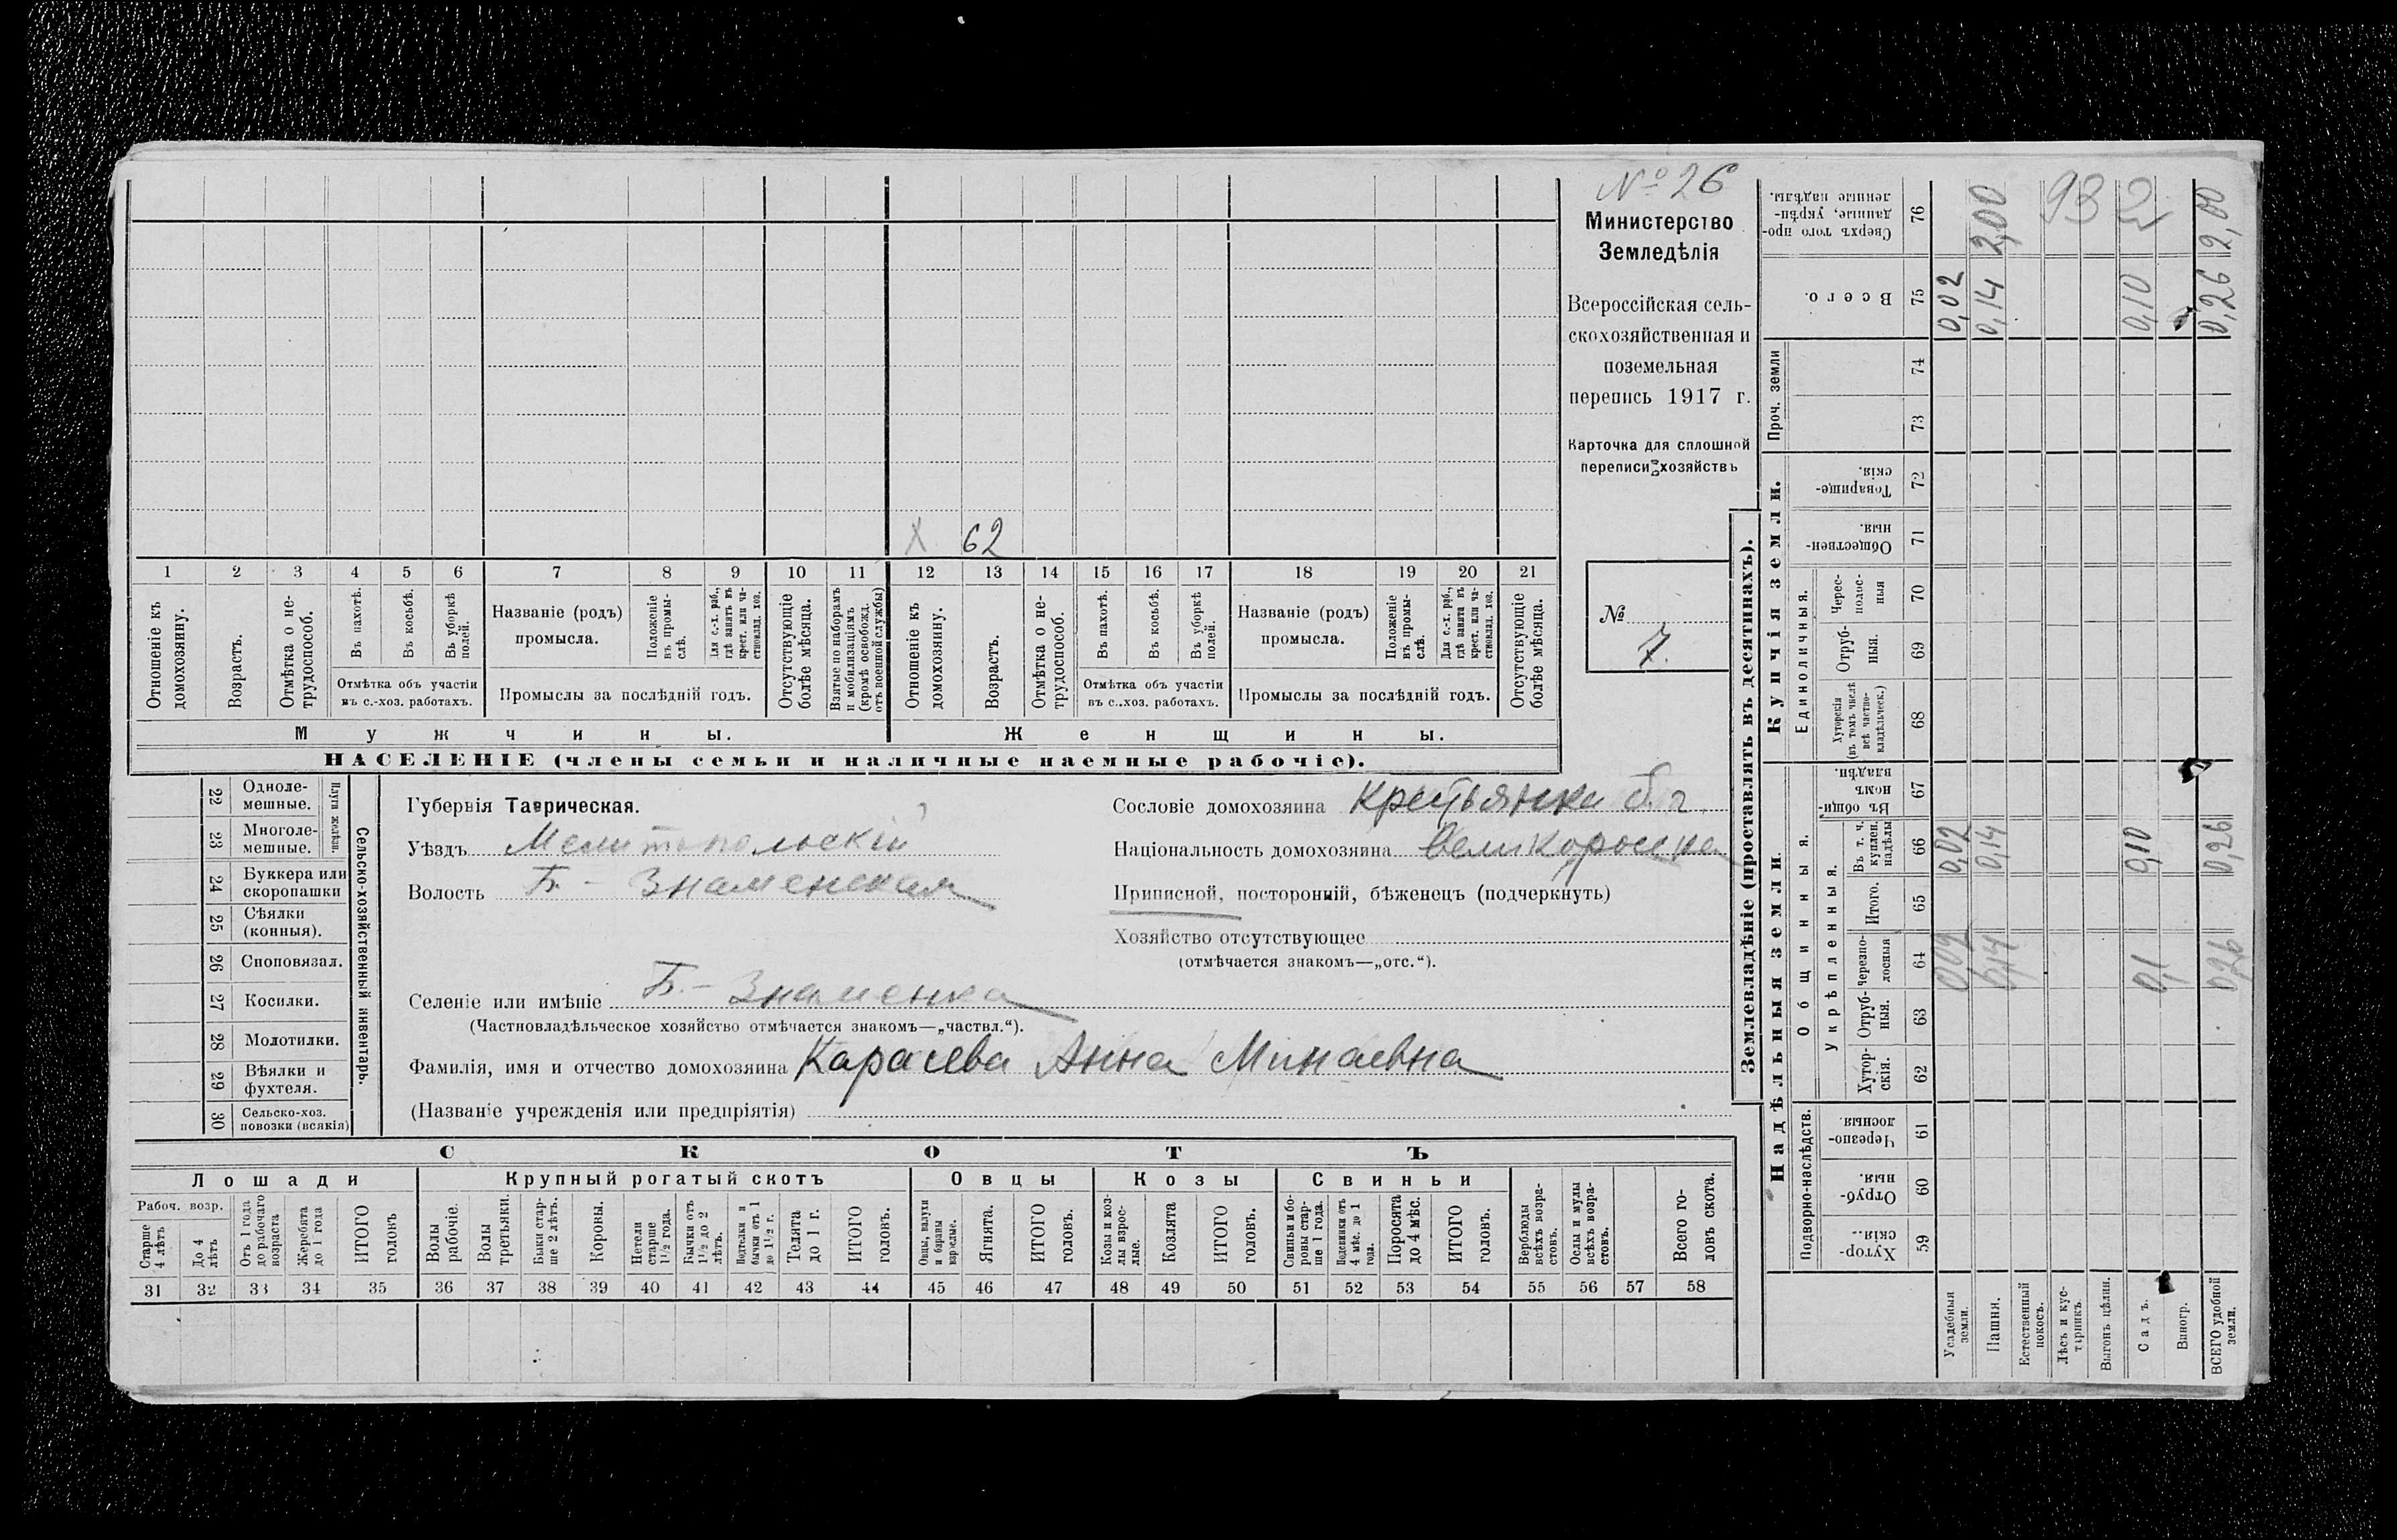 № 26
Министерство
Земледѣлія
Всероссійская сель-
скохозяйственная и
поземельная
перепись 1917 г.
Карточка для сплошной
переписи хозяйствъ
№
7.
X 62
1 2 3 4 5 6 7 8 9 10 11 12 13 14 15 16 17 18 19 20 21
Отношеніе къ домохозяину.
Возрастъ.
Отмѣтка о не-трудоспособ.
Въ пахотѣ.
Въ косьбѣ.
Въ уборкѣ полей.
Отмѣтка объ участіи
въ с.-хоз. работахъ.
Названіе (родъ)
промысла.
Положеніе въ промы-слѣ.
Для с.-х. раб., гдѣ занятъ въ крест. или ча-стновлад. хоз.
Промыслы за послѣдній годъ.
Отсутствующіе болѣе мѣсяца.
Взятые по наборамъ и мобилизаціямъ (кромѣ освобожд. отъ военной службы)
Отношеніе къ домохозяину.
Возрастъ.
Отмѣтка о не-трудоспособ.
Въ пахотѣ.
Въ косьбѣ.
Въ уборкѣ полей.
Отмѣтка объ участіи
въ с..хоз. работахъ.
Названіе (родъ)
промысла.
Положеніе въ промы-слѣ.
Для с.-х. раб., гдѣ занята въ крест. или ча-стновлад. хоз.
Промыслы за послѣдній годъ.
Отсутствующіе болѣе мѣсяца.
Мужчины. Женщины.
НАСЕЛЕНІЕ (члены семьи и наличные наемные рабочіе).
Сельско-хозяйственный инвентарь.
Плуги желѣзн.
22 Одноле-мешные.
23 Многоле-мешные.
24 Буккера или скоропашки
25 Сѣялки (конныя).
26 Сноповязал.
27 Косилки.
28 Молотилки.
29 Вѣялки и фухтеля.
30 Сельско-хоз. повозки (всякія)
Губернія Таврическая.
Уѣздъ Мелитопольскій
Волость Б - Знаменская
Селеніе или имѣніе Б. - Знаменка
(Частновладѣльческое хозяйство отмѣчается знакомъ—„частвл.“).
Фамилія, имя и отчество домохозяина Карасева Анна Минаевна
(Названіе учрежденія или предпріятія)
Сословіе домохозяина Крестьянка
Національность домохозяина Великоросска
Приписной, посторонній, бѣженецъ (подчеркнуть)
Хозяйство отсутствующее
(отмѣчается знакомъ—„отс.“).
СКОТЪ
Лошади Крупный рогатый скотъ Овцы Козы Свиньи
Рабоч. возр.
Старше 4 лѣтъ
До 4 лѣтъ
Отъ 1 года до рабочаго возраста
Жеребята до 1 года
ИТОГО головъ
Волы рабочіе.
Волы третьяки.
Быки стар-ше 2 лѣтъ.
Коровы.
Нетели старше 1½ года.
Бычки отъ 1½ до 2 лѣтъ.
Подтелки и бычки отъ 1 до 1½ г.
Телята до 1 г.
ИТОГО головъ.
Овцы, валухи и бараны взрослые.
Ягнята.
ИТОГО головъ.
Козы и коз-лы взрос-лые.
Козлята
ИТОГО головъ.
Свиньи и бо-ровы стар-ше 1 года.
Подсвинки отъ 4 мѣс. до 1 года.
Поросята до 4 мѣс.
ИТОГО головъ.
Верблюды всѣхъ возра-стовъ.
Ослы и мулы всѣхъ возра-стовъ.
Всего го-ловъ скота.
31 32 33 34 35 36 37 38 39 40 41 42 43 44 45 46 47 48 49 50 51 52 53 54 55 56 57 58
Землевладѣніе (проставлять въ десятинахъ).
Надѣльныя земли.
Купчія земли.
Проч. земли
Подворно-наслѣдств.
Общинныя.
Укрѣпленныя.
Единоличныя.
Хутор-скія.. 59
Отруб-ныя. 60
Черезпо-лосныя. 61
Хутор-скія. 62
Отруб-ныя. 63
Черезпо-лосныя 64
Итого. 65
Въ т. ч. куплен. надѣлы 66
Въ общин-номъ владѣн. 67
Хуторскія (въ томъ числѣ всѣ частно-владѣльческ.) 68
Отруб-ныя. 69
Черес-полос-ныя 70
Обществен-ныя. 71
Товарище-скія. 72
73
74
Всего. 75
Сверхъ того про-данные, укрѣп-ленные надѣлы. 76
Усадебныя земли. 0,02 0,02 0,02
Пашня. 0,14 0,14 0,14 2,00
Естественный покосъ.
Лѣсъ и кус-тарникъ. 93
Выгонъ цѣлин.
Садъ. 0,1 0,10 0,10 2
Виногр.
ВСЕГО удобной земли. 0,26 0,26 0,26 2,00